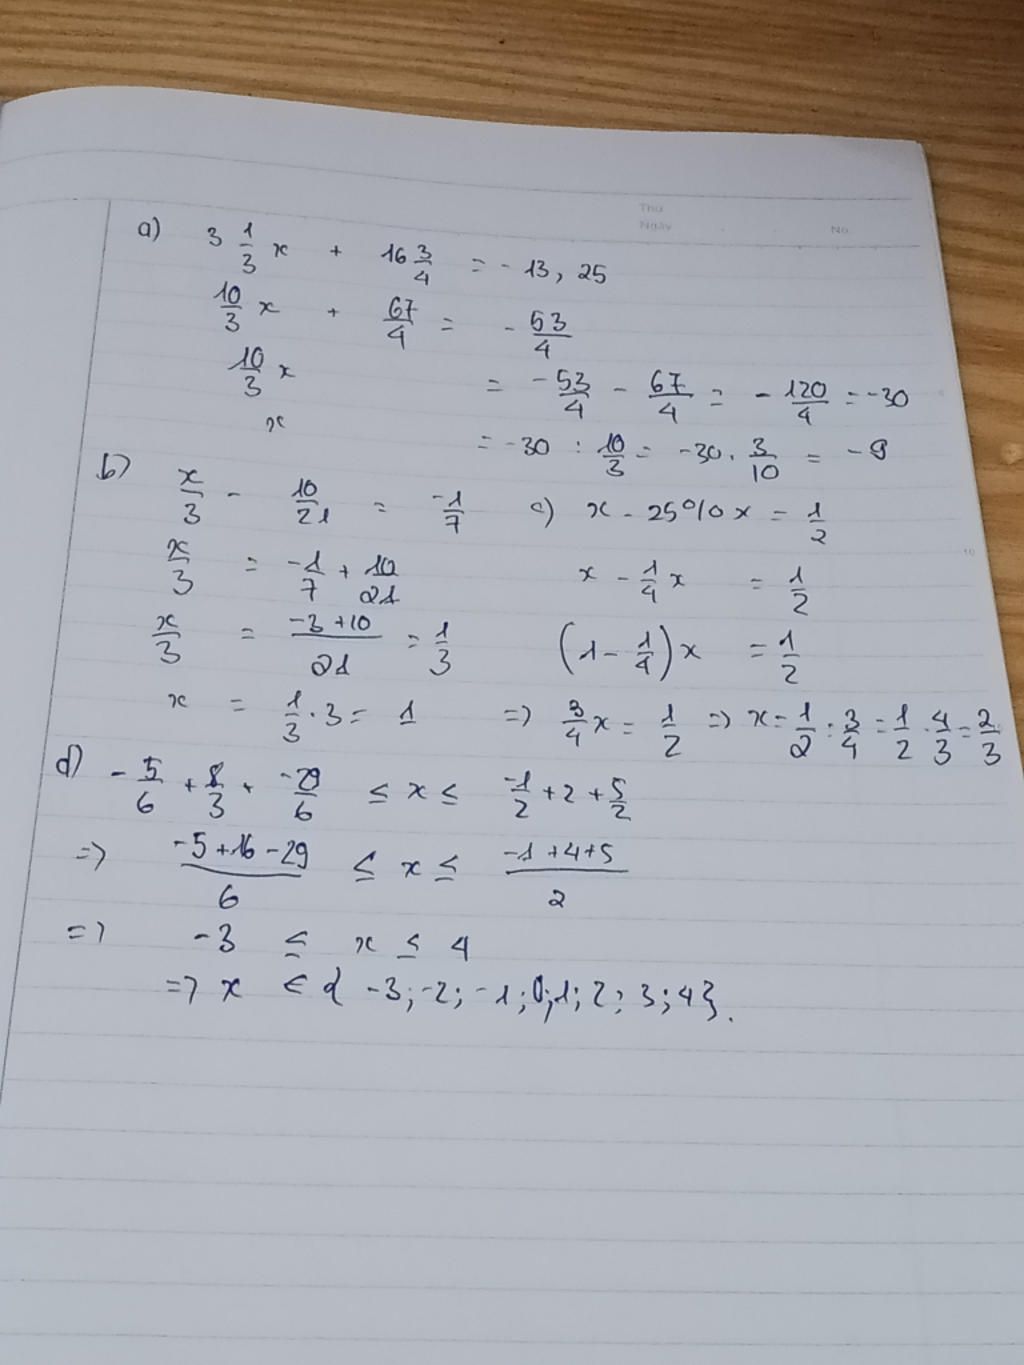 Thu
Ngày No.
a) 3 1/3 x + 16 3/4 = - 13, 25
10/3 x + 67/4 = - 53/4
10/3 x = -53/4 - 67/4 = - 120/4 = -30
x = -30 : 10/3 = -30 . 3/10 = -9
b) x/3 - 10/21 = -1/7
x/3 = -1/7 + 10/21
x/3 = (-3+10)/21 = 1/3
x = 1/3 . 3 = 1
c) x - 25% x = 1/2
x - 1/4 x = 1/2
(1 - 1/4) x = 1/2
=> 3/4 x = 1/2 => x = 1/2 : 3/4 = 1/2 . 4/3 = 2/3
d) - 5/6 + 8/3 + -29/6 ≤ x ≤ -1/2 + 2 + 5/2
=> (-5+16-29)/6 ≤ x ≤ (-1+4+5)/2
=> -3 ≤ x ≤ 4
=> x ∈ { -3; -2; -1; 0; 1; 2; 3; 4}.